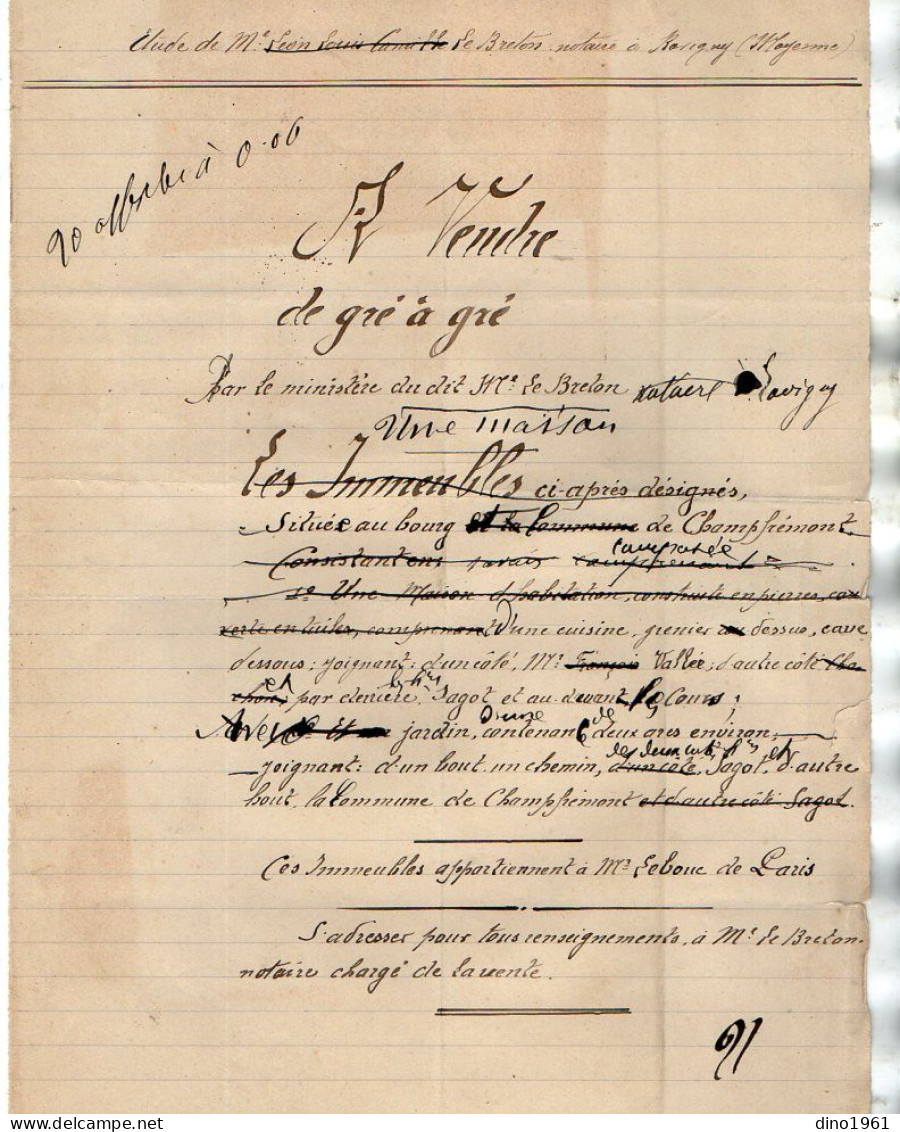 Etude de Me Léon Louis Camille Le Breton notaire à Ravigny (Mayenne)
20 affiches à 0.06
A Vendre
de gré à gré
Par le ministère du dit Me Le Breton notaire à Ravigny
Une maison
Les Immeubles ci-après désignés,
Située au bourg et la Commune de Champfrémont
composée
Consistant en: savoir comprenant
1e Une Maison d'habitation, construite en pierres, cou
verte en tuiles, comprenant d'une cuisine, grenier au dessus, cave
dessous; joignant: d'un côté, Mr François Vallée; d'autre côté
et par derrière, Sagot et au devant, le Cours;
d'une de
Avec Et un jardin, contenant deux ares environ,
des deux côtés et
joignant: d'un bout un chemin, d'un côté, Sagot, d'autre
bout, la Commune de Champfrémont et d'autre côté Sagot.
Ces Immeubles appartiennent à Mr Lebouc de Paris
S'adresser pour tous renseignements, à Me Le Breton
notaire chargé de la vente.
dino1961